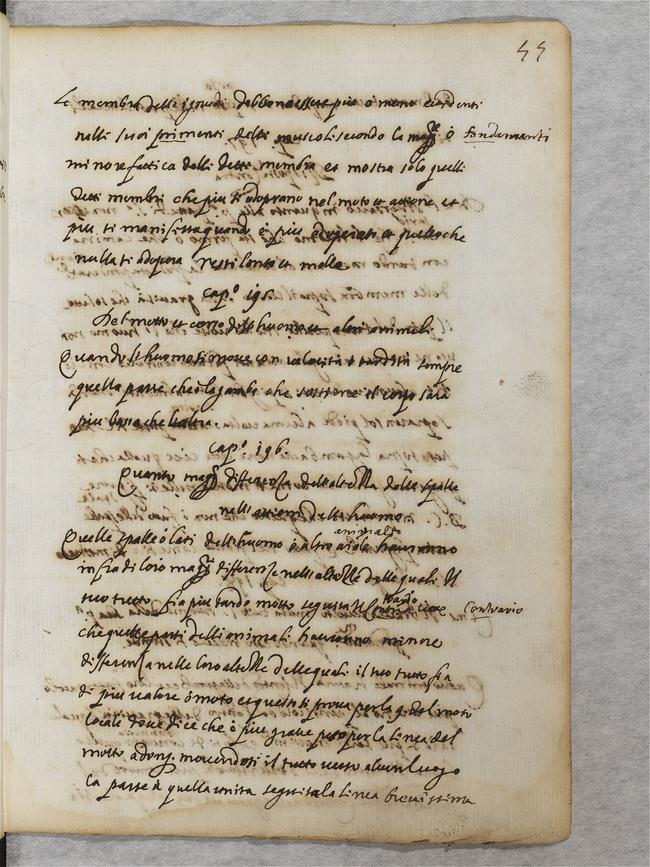 44
Le membra delli ignudi debbono essere piu o meno evidenti
nelli suoi primenti delli muscoli secondo la magre o fondamanti
minore fatica delli dette membra et mostra solo quelli
detti membri che piu si adoprano nel moto et attione et
piu si manifesta quando è piu adoperato et quello che
nulla si adopera resti lento et molle
cap.º 195
Del motto et corso dell'huomo et altri animali
Quando l'huomo si move con velocità o tardità sempre
quella parte che è la gamba che sostiene il corpo sarà
piu bassa che l'altra
cap.º 196
Quanto magr differenza dell'altezza delle spalle
nelli attioni dell'huomo
animale
Quelle spalle o lati dell'huomo o altro haveranno
infra di loro magr differenze nelle altezze delle quali il
suo tutto sia piu tardo motto seguita il Contrario
che quelle parti delli animali haveranno minore
differenza nelle loro altezze delle quali il suo tutto sia
di piu valore o moto et questo si prova per la 9. del moto
locale dove dice che ò piu grave peso per la linea del
motto adonq. movendosi il tutto verso alcun luogo
la parte à quella unita seguita la linea brevissima